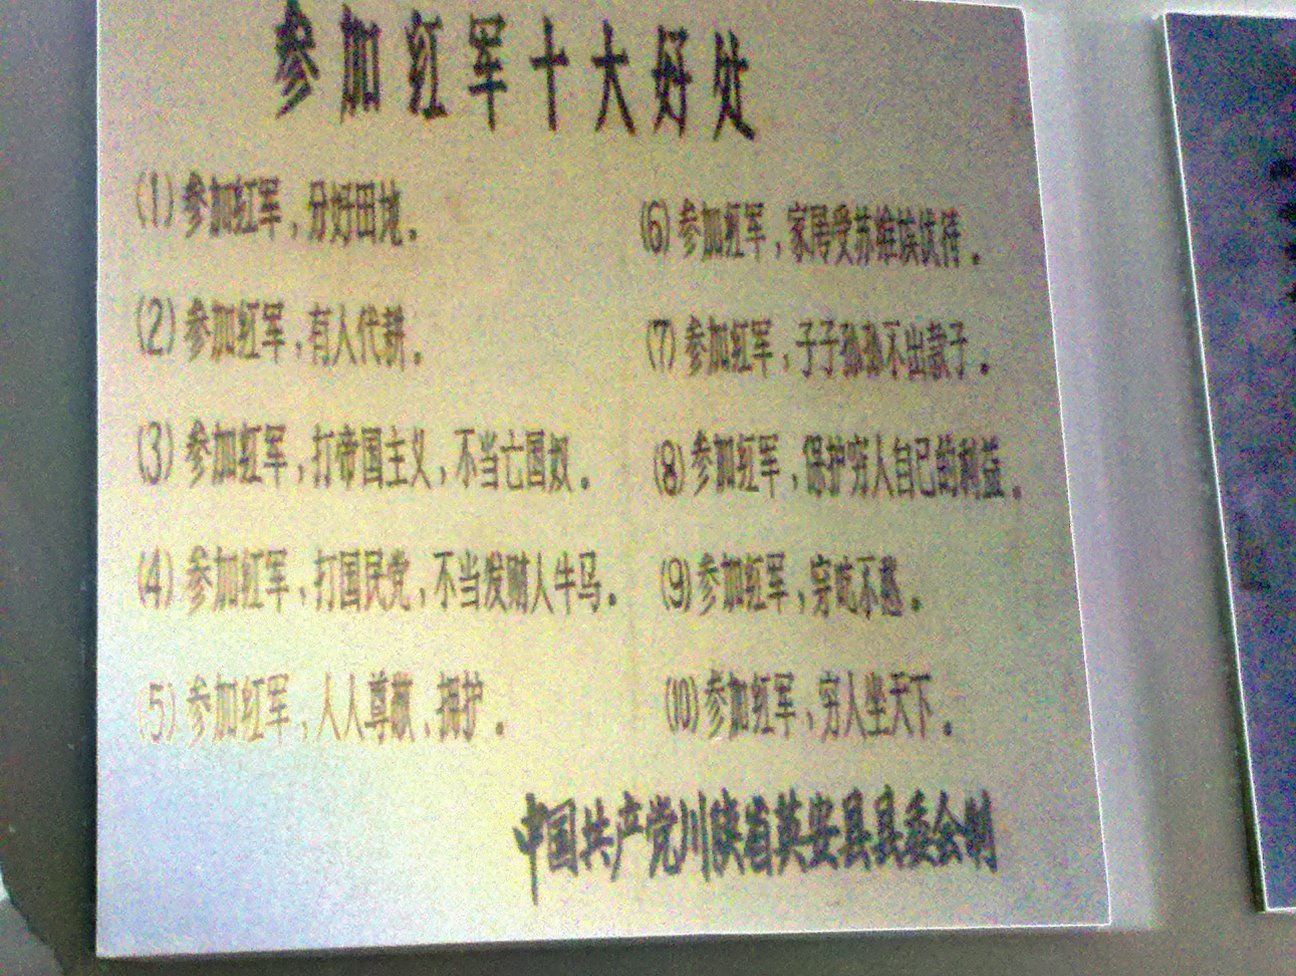 参加红军十大好处
(1) 参加红军，分好田地。
(2) 参加红军，有人代耕。
(3) 参加红军，打帝国主义，不当亡国奴。
(4) 参加红军，打国民党，不当发财人牛马。
(5) 参加红军，人人尊敬、拥护。
(6) 参加红军，家属受苏维埃优待。
(7) 参加红军，子子孙孙不出款子。
(8) 参加红军，保护穷人自己的利益。
(9) 参加红军，穿吃不愁。
(10) 参加红军，穷人坐天下。
中国共产党川陕省英安县县委会制